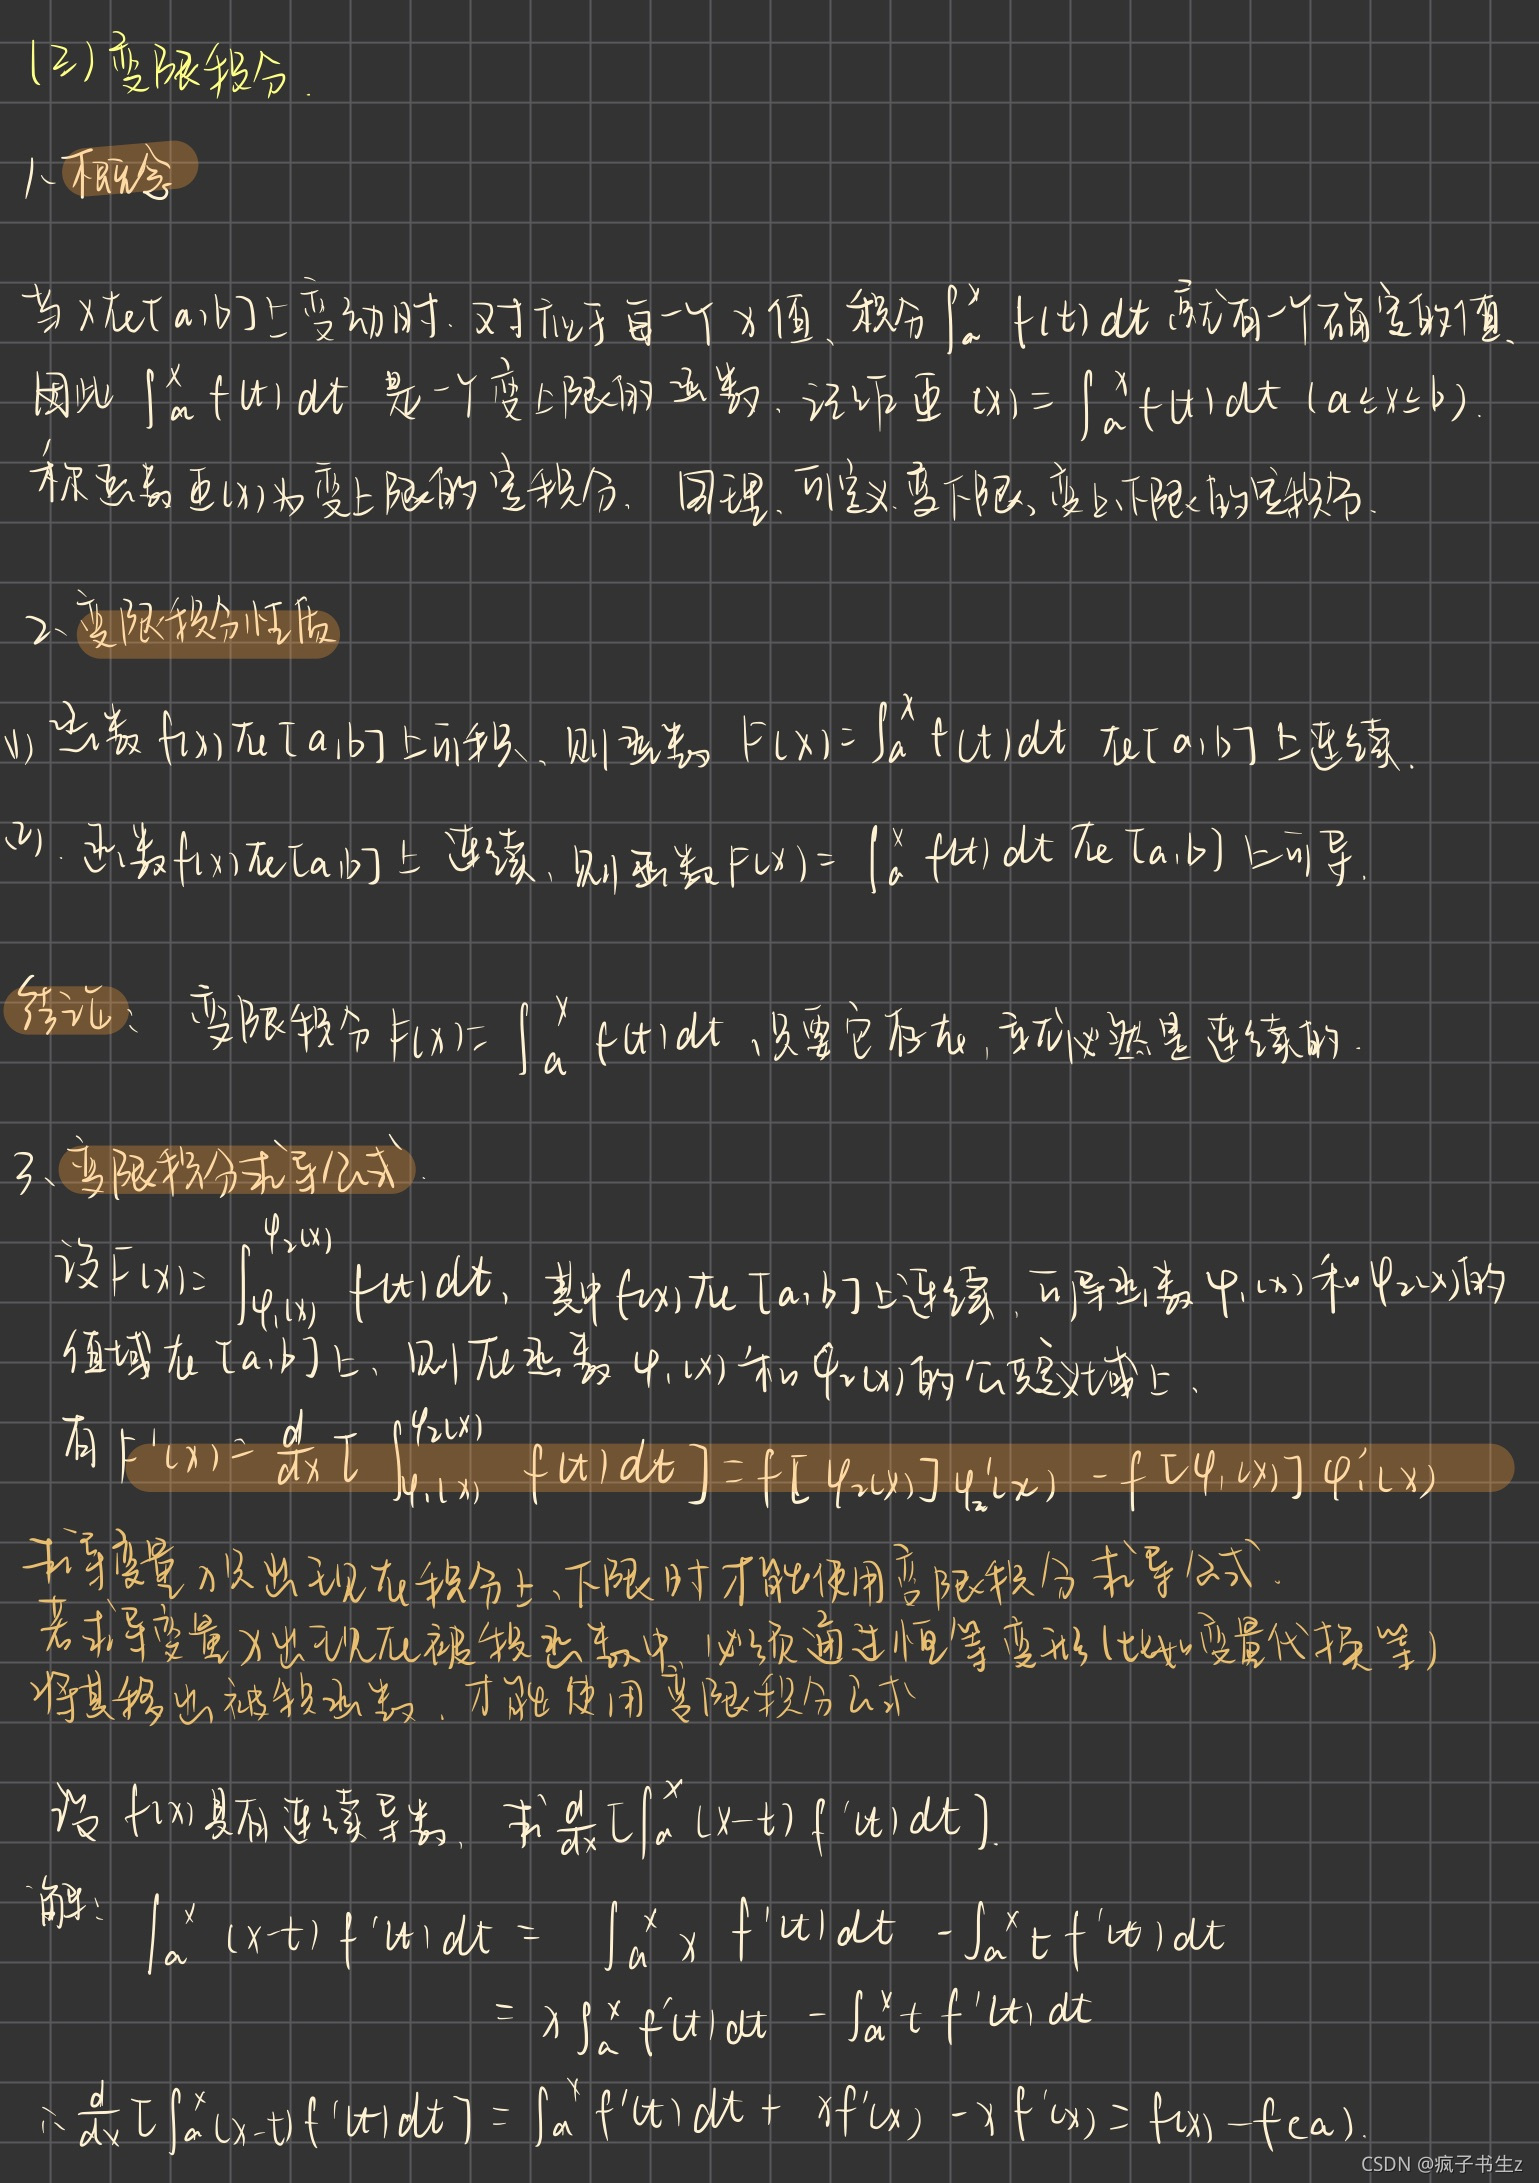 (三)变限积分.
1、概念
当x在[a,b]上变动时.对应于每一个x值、积分∫ₐˣ f(t)dt就有一个确定的值、
因此∫ₐˣ f(t)dt是一个变上限的函数、记作Φ(x)=∫ₐˣ f(t)dt(a≤x≤b).
称函数Φ(x)为变上限的定积分.同理、可定义变下限、变上、下限的定积分.
2、变限积分性质
(1)函数f(x)在[a,b]上可积、则函数F(x)=∫ₐˣ f(t)dt在[a,b]上连续.
(2).函数f(x)在[a,b]上连续、则函数F(x)=∫ₐˣ f(t)dt在[a,b]上可导.
结论:变限积分F(x)=∫ₐˣ f(t)dt、只要它存在,就必然是连续的.
3、变限积分求导公式.
设F(x)=∫_{φ₁(x)}^{φ₂(x)} f(t)dt,其中f(x)在[a,b]上连续、可导函数φ₁(x)和φ₂(x)的
值域在[a,b]上、则在函数φ₁(x)和φ₂(x)的公共定义域上、
有F'(x)=d/dx[∫_{φ₁(x)}^{φ₂(x)} f(t)dt]=f[φ₂(x)]φ₂'(x)-f[φ₁(x)]φ₁'(x)
求导变量x只出现在积分上、下限时才能使用变限积分求导公式.
若求导变量x出现在被积函数中,必须通过恒等变形(比如变量代换等)
将其移出被积函数、才能使用变限积分公式
设f(x)具有连续导数、求d/dx[∫ₐˣ(x-t)f'(t)dt].
解:∫ₐˣ(x-t)f'(t)dt=∫ₐˣ x f'(t)dt-∫ₐˣ t f'(t)dt
=x∫ₐˣ f'(t)dt-∫ₐˣ t f'(t)dt
∴d/dx[∫ₐˣ(x-t)f'(t)dt]=∫ₐˣ f'(t)dt+xf'(x)-xf'(x)=f(x)-f(a).
CSDN @疯子书生z